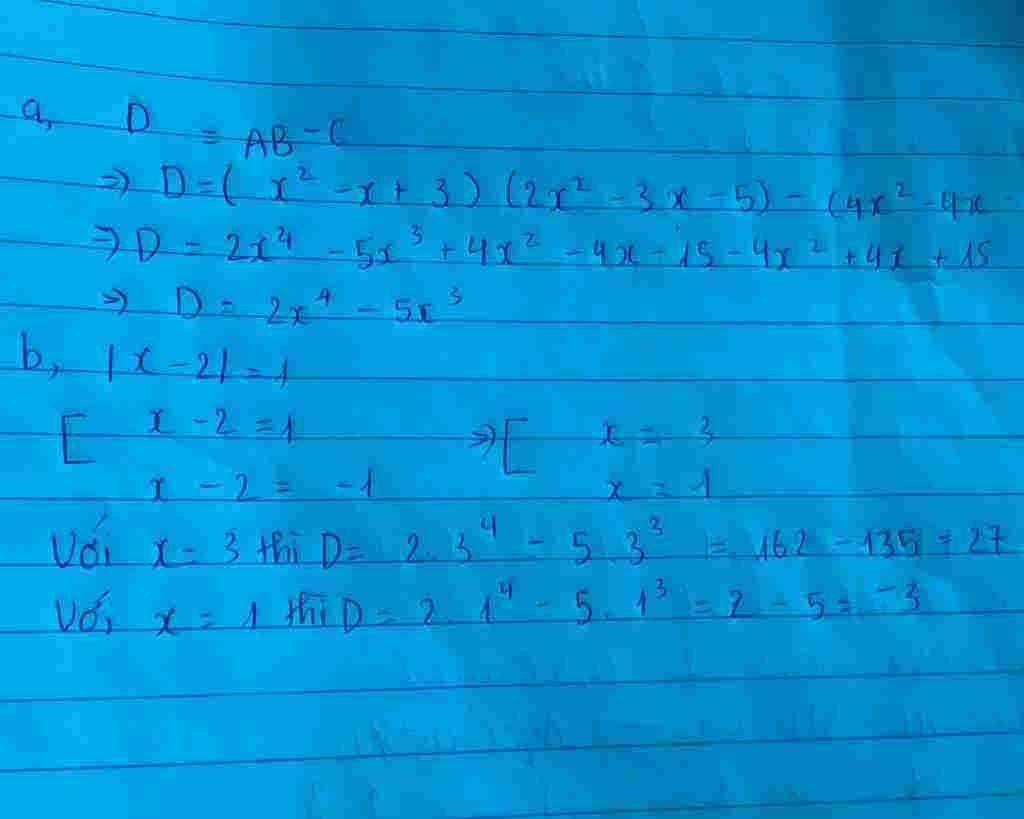 a, D = AB - C
=> D = ( x² - x + 3 ) (2x² - 3x - 5) - (4x² - 4x -
=> D = 2x⁴ - 5x³ + 4x² - 4x - 15 - 4x² + 4x + 15
=> D = 2x⁴ - 5x³
b, |x - 2| = 1
[ x - 2 = 1 => [ x = 3
x - 2 = -1 x = 1
Với x = 3 thì D = 2.3⁴ - 5.3³ = 162 - 135 = 27
Với x = 1 thì D = 2.1⁴ - 5.1³ = 2 - 5 = -3